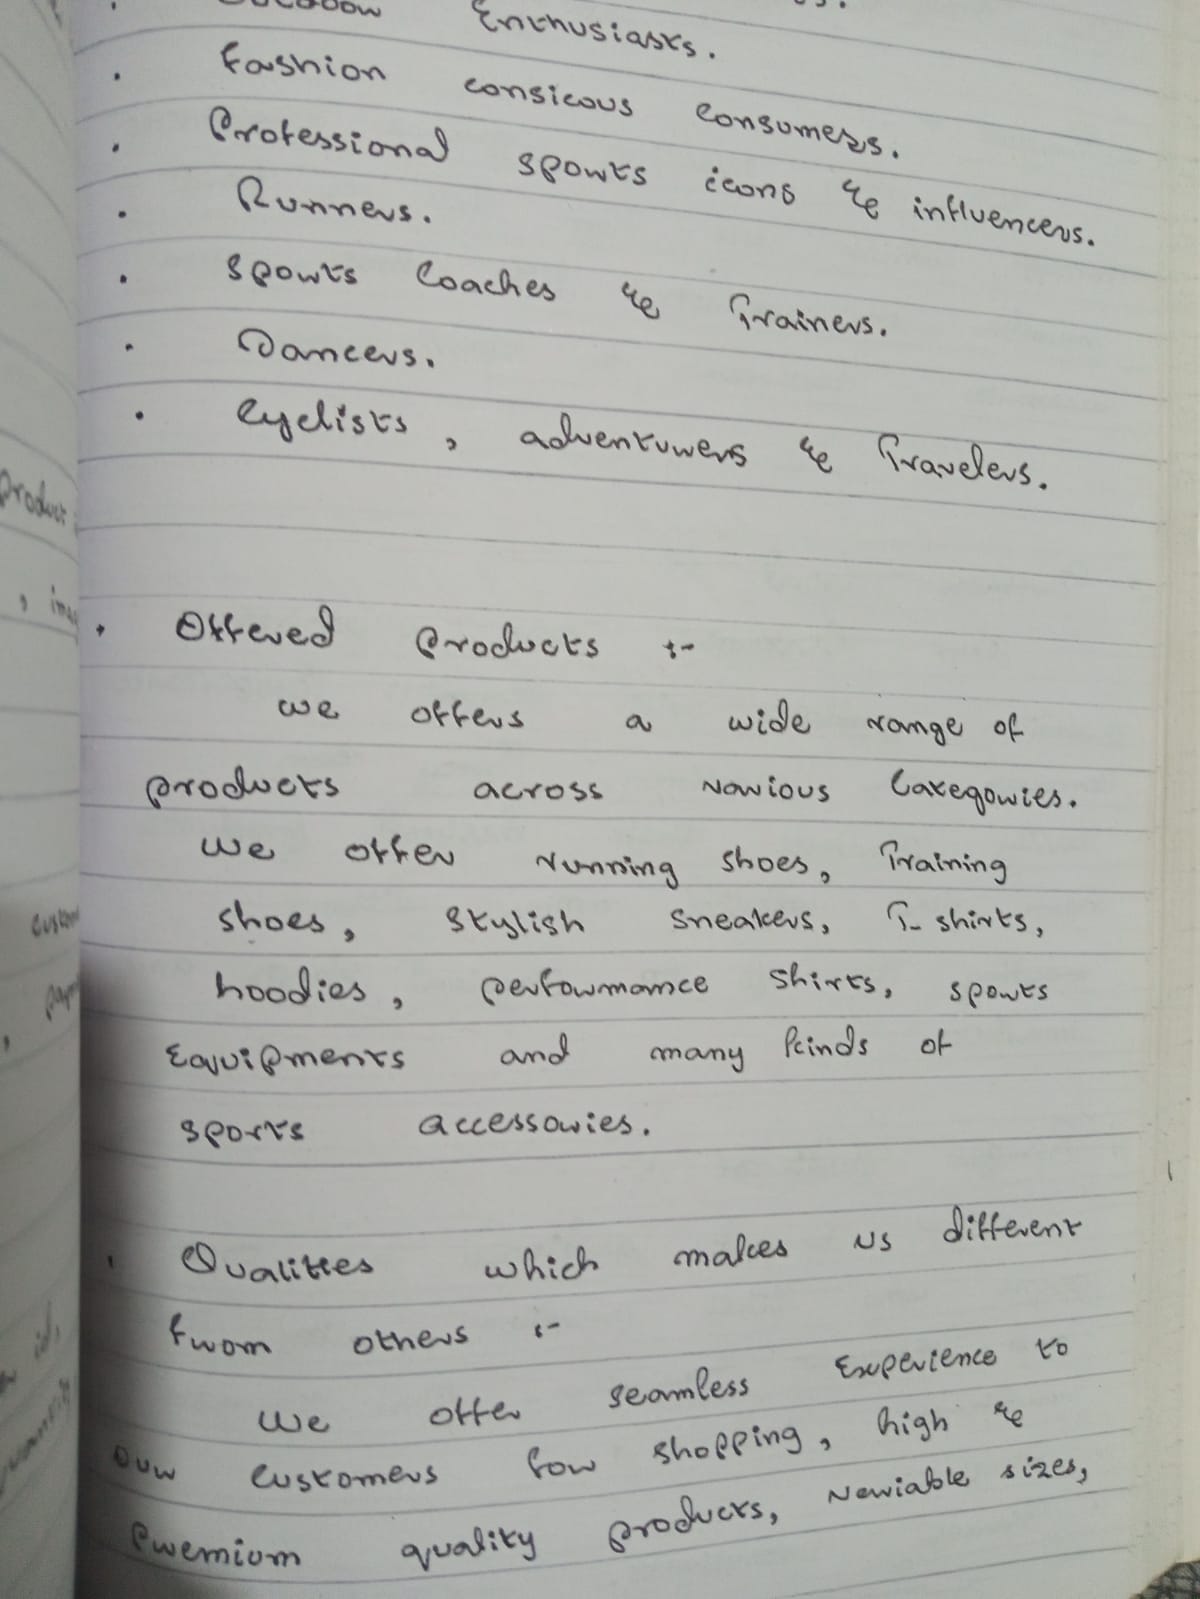 Enthusiasts.
• Fashion consicous Consumers.
• Professional sports icons & influencers.
• Runners.
• Sports Coaches & Trainers.
• Dancers.
• Cyclists, adventurers & Travelers.
• Offered Products :-
we offers a wide range of
products across various Categories.
We offer running shoes, Training
shoes, stylish sneakers, T-shirts,
hoodies, performance shirts, sports
Equipments and many kinds of
sports accessories.
• Qualities which makes us different
from others :-
We offer seamless Experience to
our customers for shopping, high &
Premium quality products, Veriable sizes,
product
customer
id,